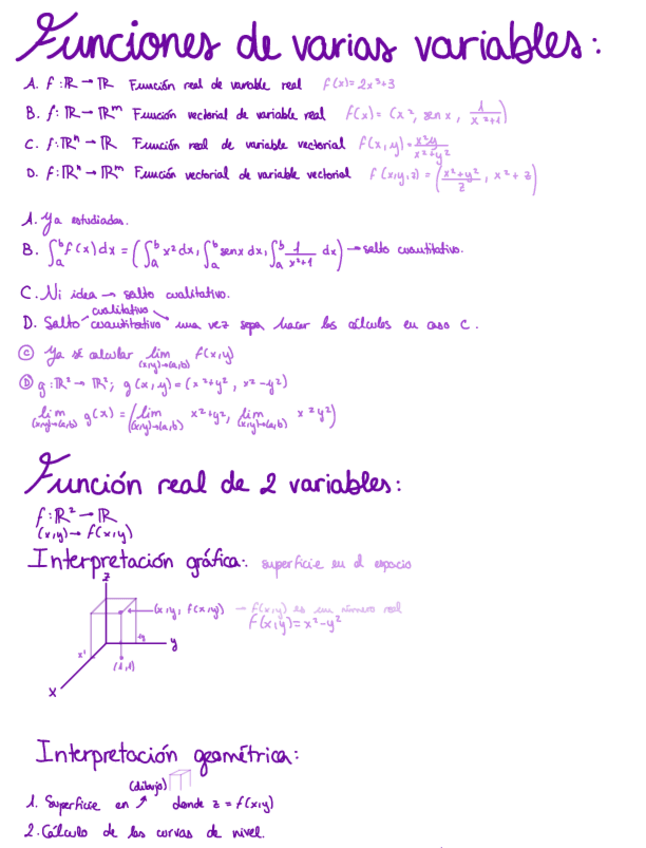 Funciones de varias variables:
A. f: ℝ → ℝ Función real de variable real f(x)= 2x³+3
B. f: ℝ → ℝᵐ Función vectorial de variable real f(x)= (x², sen x, 1/(x²+1))
C. f: ℝⁿ → ℝ Función real de variable vectorial f(x,y) = x²y/(x²+y²)
D. f: ℝⁿ → ℝᵐ Función vectorial de variable vectorial f(x,y,z) = ((x²+y²)/z, x²+z)
A. Ya estudiadas.
B. ∫ₐᵇ f(x)dx = (∫ₐᵇ x²dx, ∫ₐᵇ senx dx, ∫ₐᵇ 1/(x²+1) dx) → salto cuantitativo.
C. Ni idea → salto cualitativo.
cualitativo
D. Salto cuantitativo una vez sepa hacer los cálculos en caso C.
Ⓒ Ya sé calcular lim (x,y)→(a,b) f(x,y)
Ⓓ g: ℝ² → ℝ²; g(x,y)=(x²+y², x²-y²)
lim (x,y)→(a,b) g(x) = (lim (x,y)→(a,b) x²+y², lim (x,y)→(a,b) x²y²)
Función real de 2 variables:
f: ℝ² → ℝ
(x,y) → f(x,y)
Interpretación gráfica: superficie en el espacio
z
(x,y, f(x,y)) → f(x,y) es un número real
f(x,y)= x²-y²
y
x
(1,1)
Interpretación geométrica:
(dibujo)
1. Superficie en ↗ donde z = f(x,y)
2. Cálculo de las curvas de nivel.